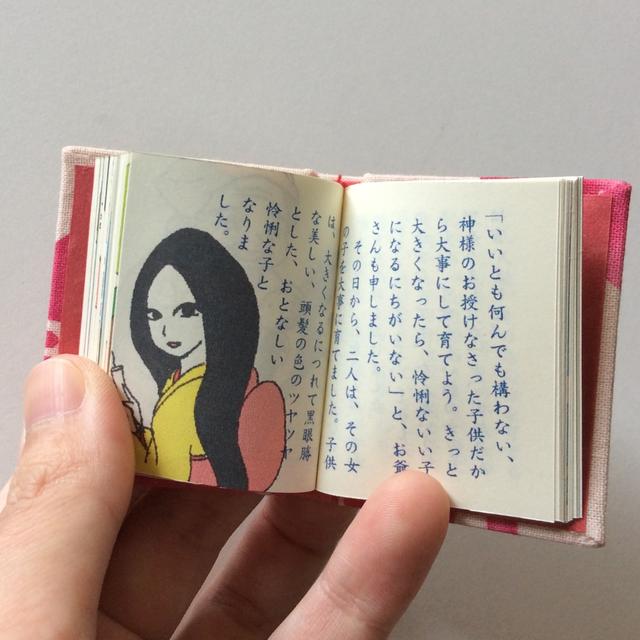 「いいとも何んでも構わない、
神様のお授けなさった子供だか
ら大事にして育てよう。きっと
大きくなったら、怜悧ないい子
になるにちがいない」と、お爺
さんも申しました。
その日から、二人は、その女
の子を大事に育てました。子供
は、大きくなるにつれて黒眼勝
な美しい、頭髪の色のツヤツヤ
とした、おとなしい
怜悧な子と
なりま
した。